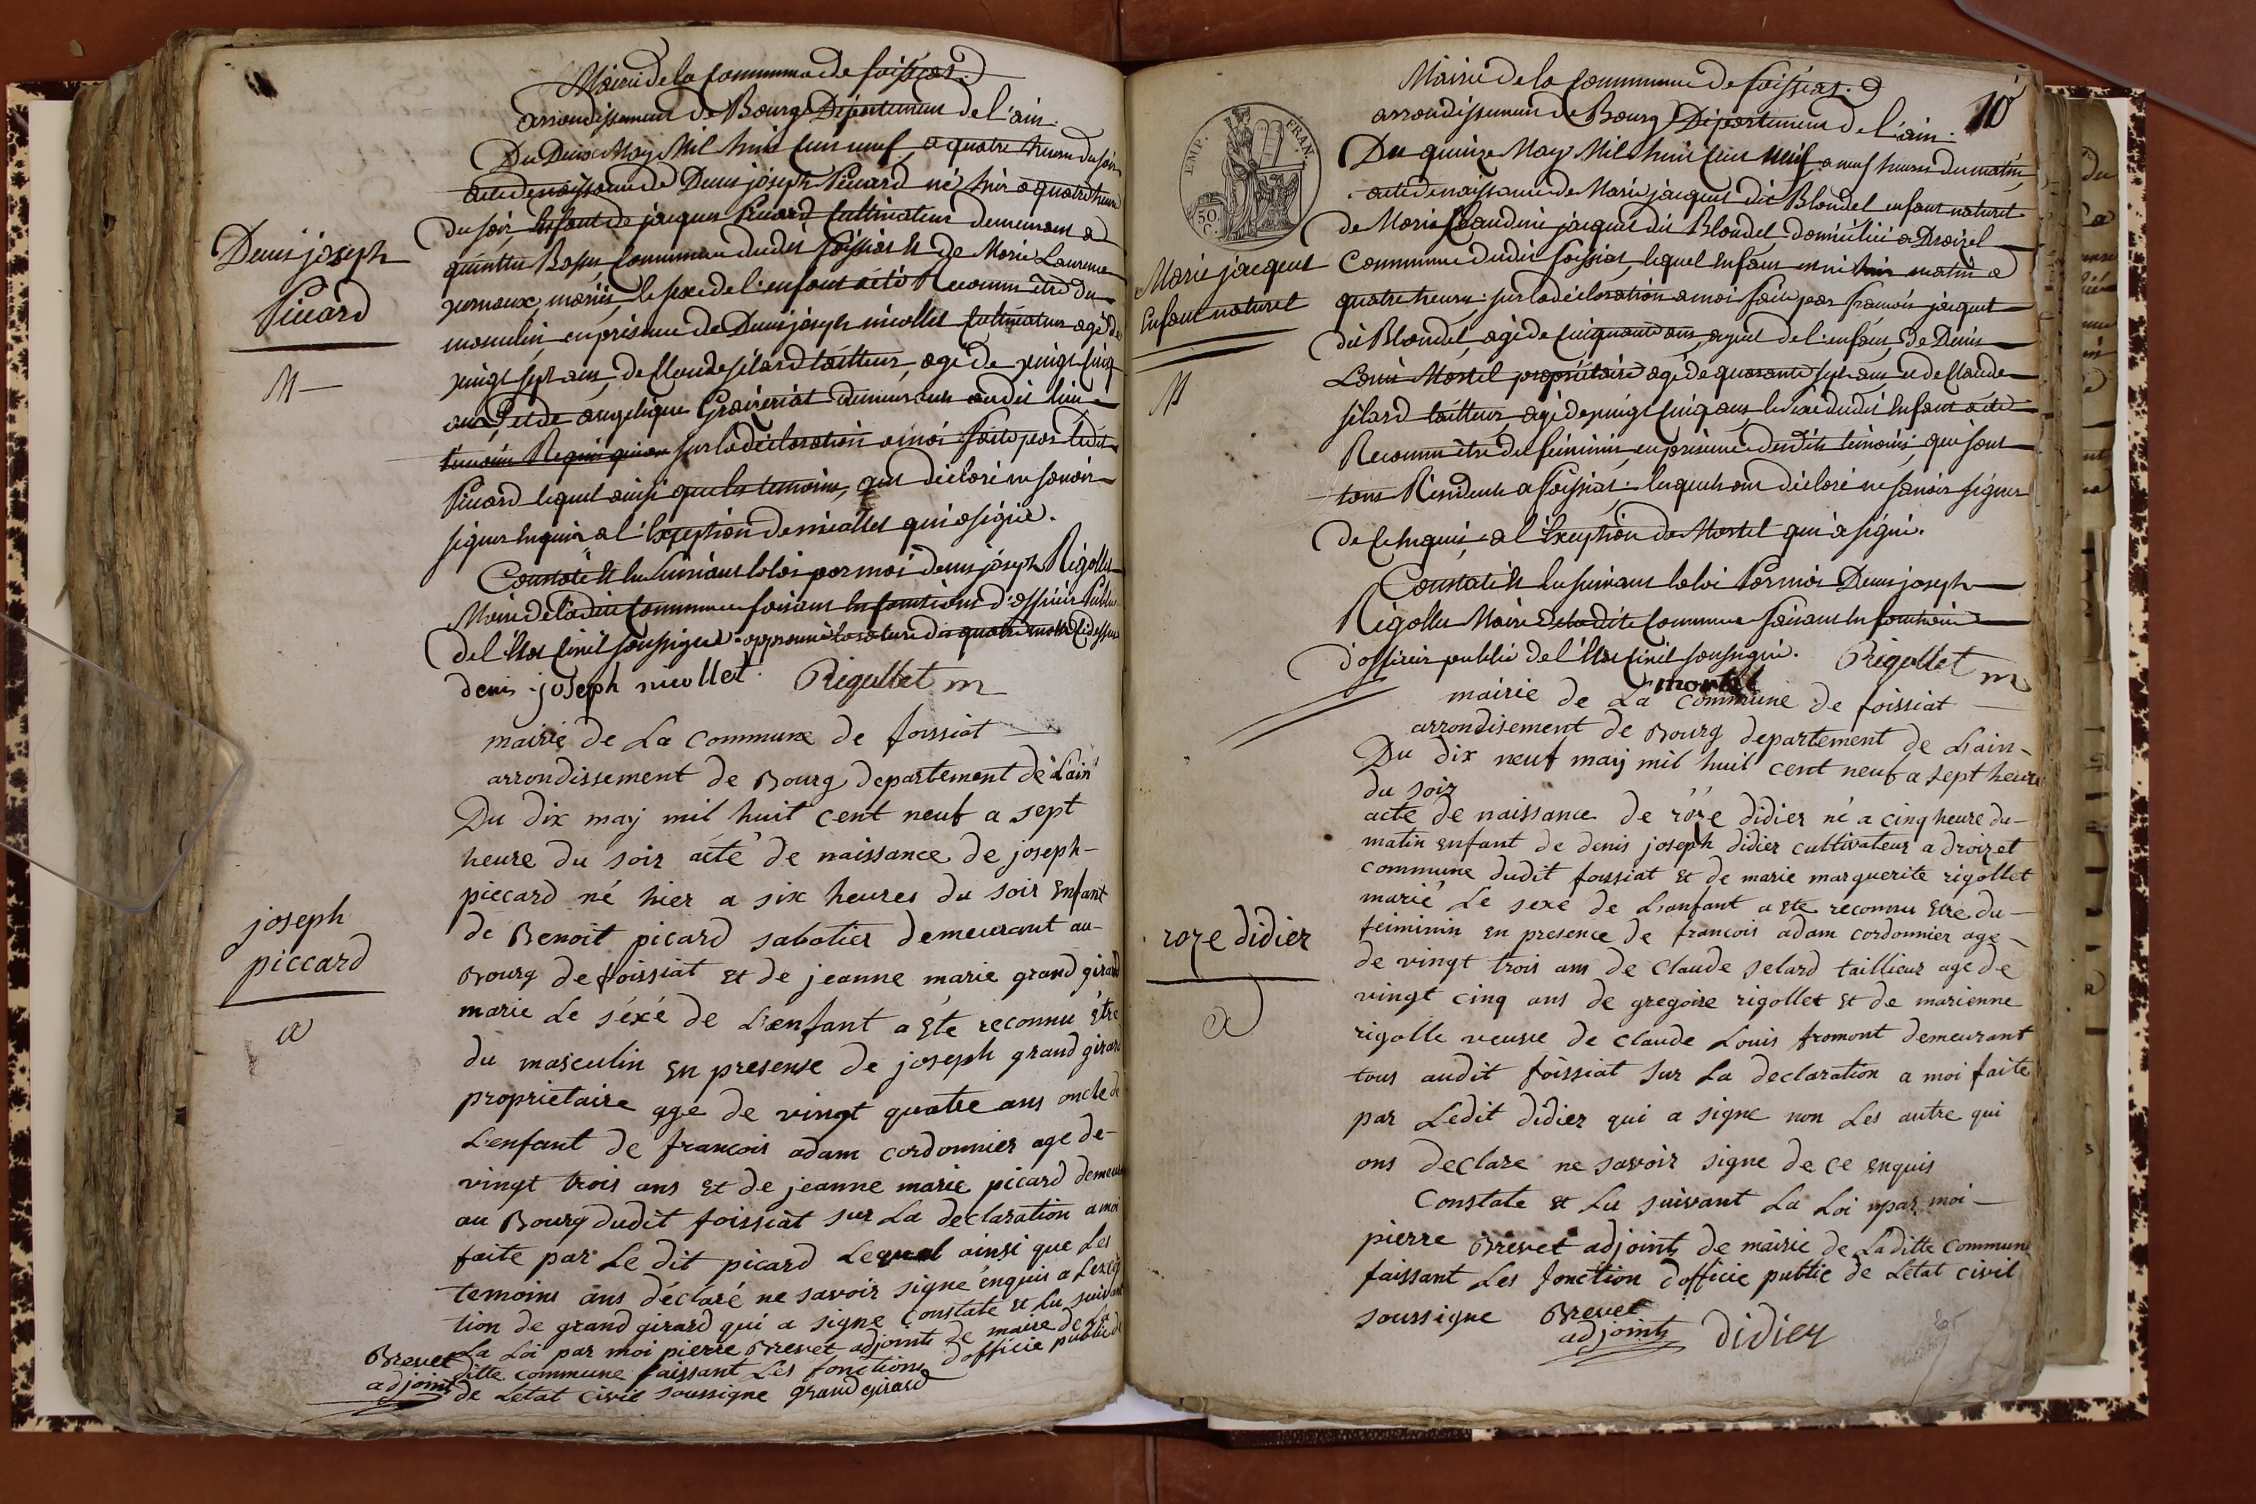 Mairie de la Commune de foissiat.
arrondissement de Bourg Département de l'ain.
Du Deux May Mil huit Cent neuf, a quatre heures du soir
acte de naissance de Denis joseph Picard né hier a quatre heures
du soir, Enfant de jacques Picard Cultivateur demeurant a
Commune dudit foissiat Et de Marie Laurence
mariés, le sexe de l'enfant a été Reconnu être du
masculin, en présence de Denis joseph nicollet Cultivateur agé de
vingt sept ans, de Claude sélard tailleur, agé de vingt Cinq
ans, et de angelique demeurant audit lieu
sur la déclaration a moi faite par ledit
Picard lequel ainsi que les temoins, ont déclaré ne savoir
signer Enquis a l'Exception de nicollet qui a signé.
Constaté Et lu suivant la loi par moi denis joseph Rigollet
Maire de ladite Commune faisant les fonctions d'officier Public
de l'Etat Civil soussigné. approuvé la rature de quatre mots Ci dessus
denis joseph nicollet. Rigollet m
Denis joseph
Picard
M
mairie de La Commune de foissiat
arrondissement de Bourg departement de Lain
Du dix maij mil huit cent neuf a sept
heure du soir acte de naissance de joseph
piccard né hier a six heures du soir Enfant
de Benoit picard sabotier demeurant au
Bourg de foissiat Et de jeanne marie grand girard
marie Le séxé de L'enfant a Eté reconnu être
du masculin En presense de joseph grand girard
proprietaire age de vingt quatre ans oncle de
L'enfant de francois adam cordonnier age de
vingt trois ans Et de jeanne marie picard demeu
au Bourg dudit foissiat sur La declaration a moi
faite par Le dit picard Lequel ainsi que Les
temoins ans déclaré ne savoir signe énquis a Lexcep
tion de grand girard qui a signe Constate Et Lu suivant
La Loi par moi pierre Brevet adjoint de maire de La
ditte commune faissant Les fonctions d'officie public
de Letat civil soussigne grand girard
Brevet
adjoint
joseph
piccard
a
10
Mairie de la Commune de foissiat.
arrondissement de Bourg Département de l'ain.
Du quinze May Mil huit Cent Neuf, a neuf heures du matin,
acte de naissance de Marie jacquet dit Blondel enfant naturel
de Marie Claudine jacquet dit Blondel, domiciliée a Droizel
Commune dudit foissiat, lequel Enfant est né hier matin a
quatre heures. sur la déclaration a moi faite par francois jacquet
dit Blondel, agé de Cinquante ans, ayeul de l'enfant, de Denis
Louis Mortel propriétaire agé de quarante sept ans, et de Claude
sélard tailleur, agé de vingt Cinq ans, le sexe dudit Enfant a été
Reconnu être du féminin, en présence desdits témoins, qui sont
tous Résidents a foissiat. lesquels ont déclaré ne savoir signer
de Ce Enquis, a l'Exception de Mortel qui a signé.
Constaté Et lu suivant la loi Par moi Denis joseph
Rigollet Maire de ladite Commune faisant les fonctions
d'officier public de l'Etat Civil soussigné. Rigollet m
mortel
EMP. FRAN.
50 C.
Marie jacquet
Enfant naturel
M
mairie de La Commune de foissiat
arrondisement de Bourg departement de Lain
Du dix neuf maij mil huit cent neuf a sept heure
du soir
acte de naissance de roze didier né a cinq heure du
matin Enfant de denis joseph didier cultivateur a droizet
commune dudit foissiat Et de marie marguerite rigollet
marié Le sexe de L'anfant a Ete reconnu Etre du
feiminin En presence de francois adam cordonnier age
de vingt trois ans de Claude selard taillieur age de
vingt cinq ans de gregoire rigollet Et de marienne
rigolle veusve de claude Louis fromont demeurant
tous audit foissiat sur La declaration a moi faite
par Ledit didier qui a signe non Les autre qui
ons declare ne savoir signe de ce Enquis
Constate Et Lu suivant La Loi par moi
pierre Brevet adjoint de mairie de La ditte Commune
faissant Les fonction d'officie public de Letat civil
soussigne Brevet
adjoint didier
roze didier
a